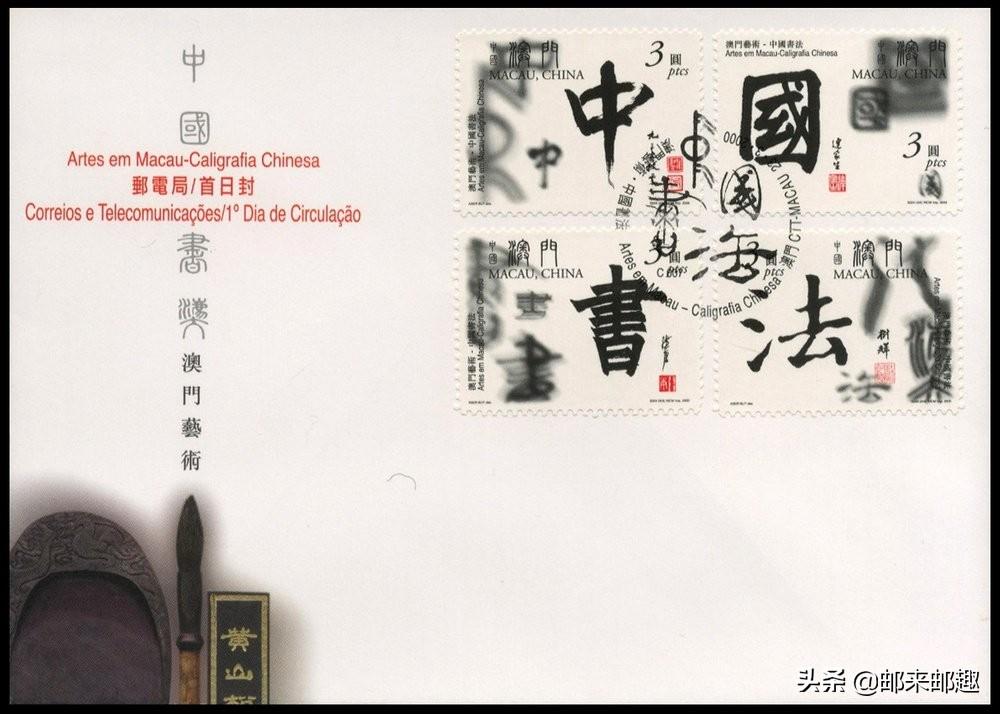 中
國
書
漢
Artes em Macau-Caligrafia Chinesa
郵電局/首日封
Correios e Telecomunicações/1º Dia de Circulação
澳
門
藝
術
中國
澳門
MACAU, CHINA
3圓
ptcs
中
澳門藝術 - 中國書法
Artes em Macau-Caligrafia Chinesa
澳門藝術 - 中國書法
Artes em Macau-Caligrafia Chinesa
中國
澳門
MACAU, CHINA
國
3圓
ptcs
中國
澳門
MACAU, CHINA
3圓
ptcs
書
澳門藝術 - 中國書法
Artes em Macau-Caligrafia Chinesa
中國
澳門
MACAU, CHINA
圓
ptcs
法
中
國
書
法
Artes em Macau – Caligrafia Chinesa
澳門 CTT-MACAU
黃
山
头条 @邮来邮趣